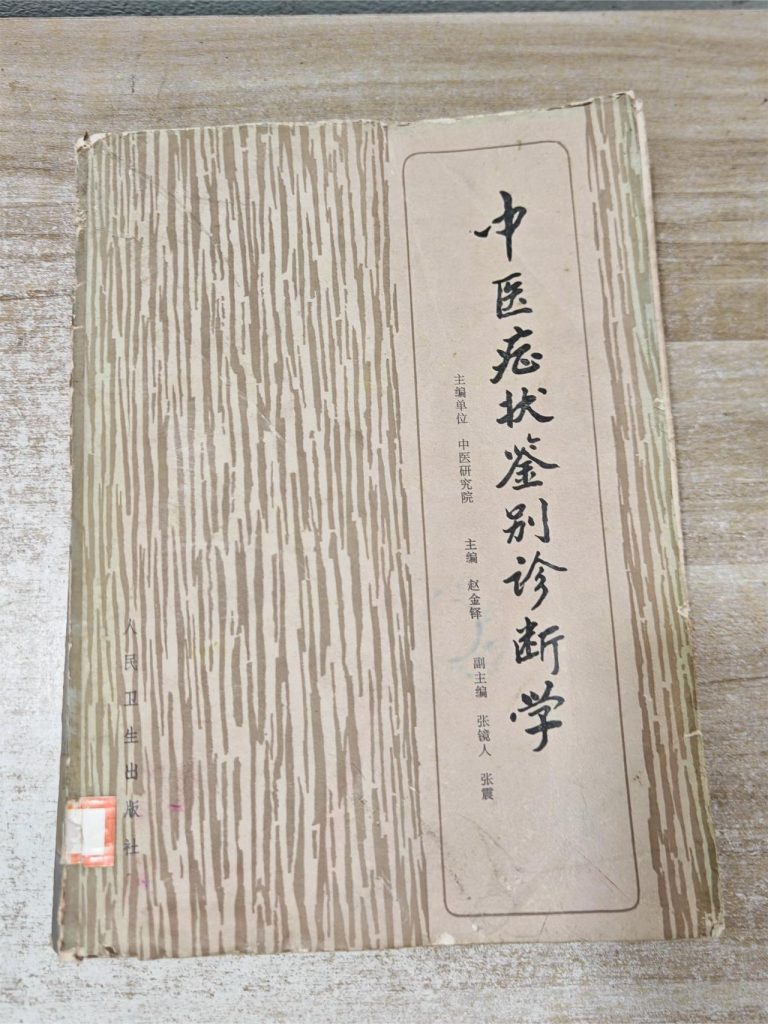 中医症状鉴别诊断学
主编单位 中医研究院 主编 赵金铎 副主编 张镜人 张震
人民卫生出版社